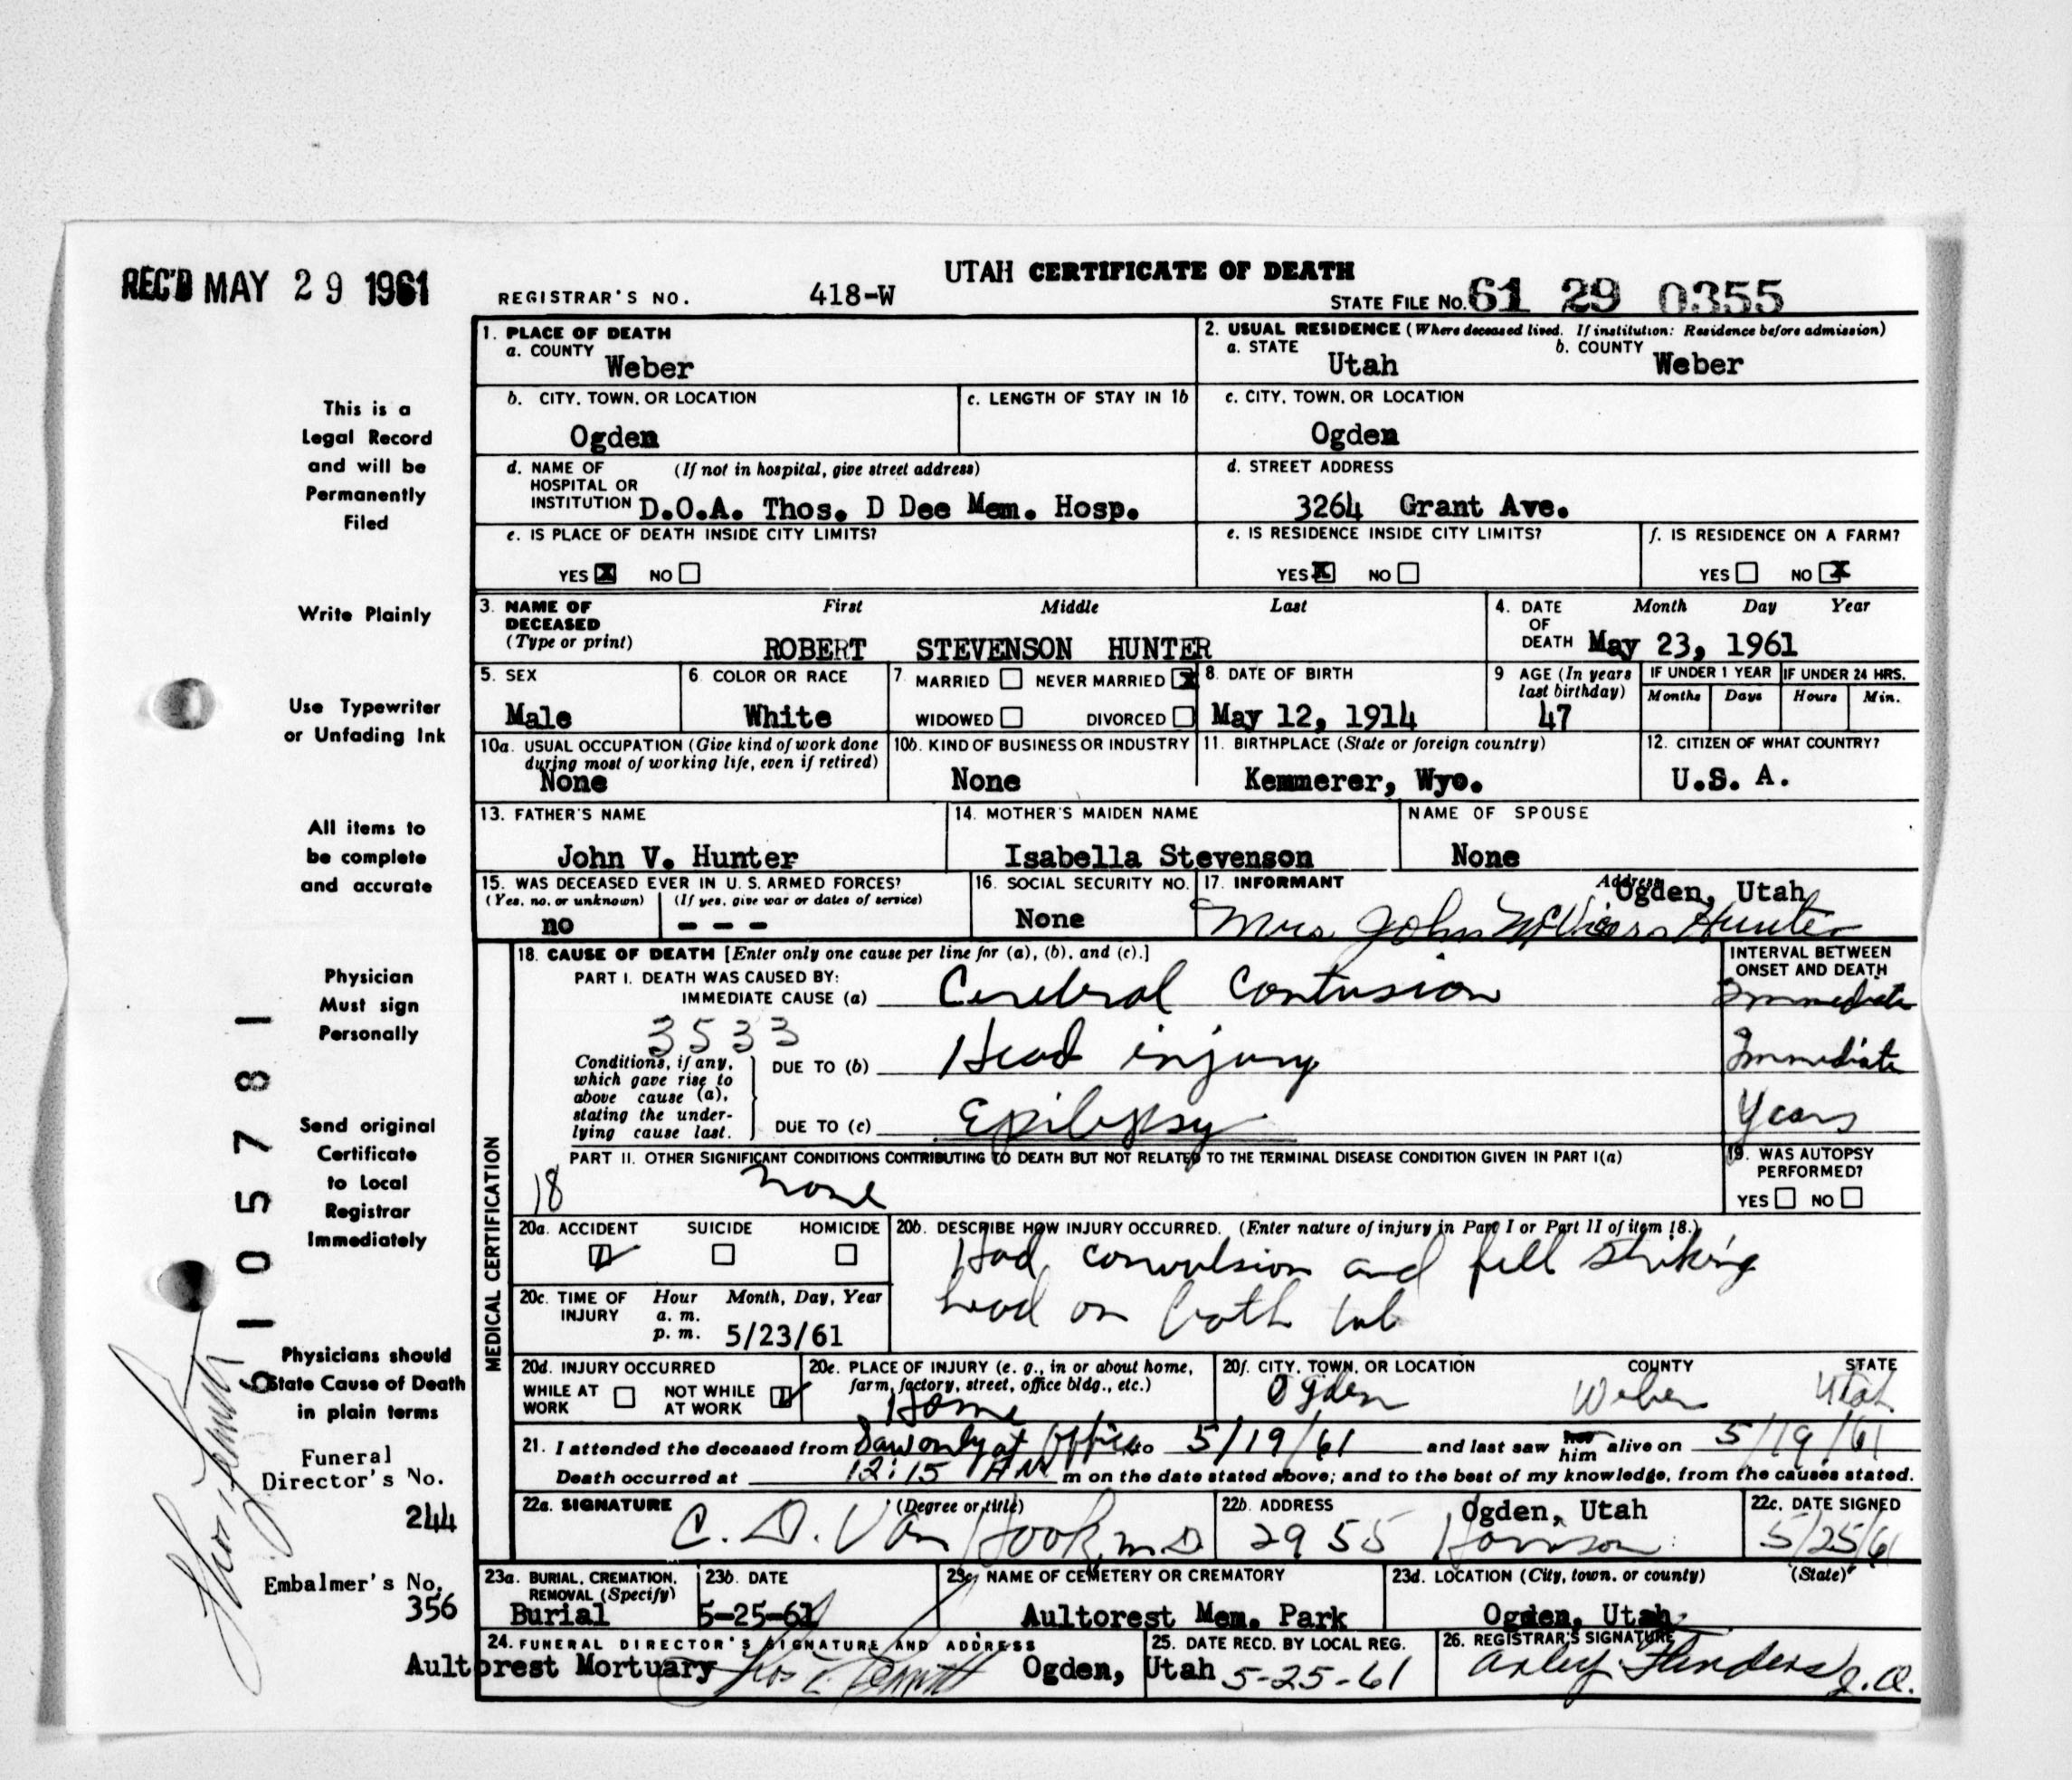 REC'D MAY 29 1961
UTAH CERTIFICATE OF DEATH
REGISTRAR'S NO. 418-W
STATE FILE NO. 61 29 0355
1. PLACE OF DEATH
a. COUNTY
Weber
2. USUAL RESIDENCE (Where deceased lived. If institution: Residence before admission)
a. STATE b. COUNTY
Utah Weber
b. CITY, TOWN, OR LOCATION
Ogden
c. LENGTH OF STAY IN 1b
c. CITY, TOWN, OR LOCATION
Ogden
d. NAME OF (If not in hospital, give street address)
HOSPITAL OR
INSTITUTION D.O.A. Thos. D Dee Mem. Hosp.
d. STREET ADDRESS
3264 Grant Ave.
e. IS PLACE OF DEATH INSIDE CITY LIMITS?
YES X NO
e. IS RESIDENCE INSIDE CITY LIMITS?
YES X NO
f. IS RESIDENCE ON A FARM?
YES NO X
3. NAME OF First Middle Last
DECEASED
(Type or print) ROBERT STEVENSON HUNTER
4. DATE Month Day Year
OF
DEATH May 23, 1961
5. SEX
Male
6. COLOR OR RACE
White
7. MARRIED NEVER MARRIED X
WIDOWED DIVORCED
8. DATE OF BIRTH
May 12, 1914
9 AGE (In years
last birthday)
47
IF UNDER 1 YEAR IF UNDER 24 HRS.
Months Days Hours Min.
10a. USUAL OCCUPATION (Give kind of work done
during most of working life, even if retired)
None
10b. KIND OF BUSINESS OR INDUSTRY
None
11. BIRTHPLACE (State or foreign country)
Kemmerer, Wyo.
12. CITIZEN OF WHAT COUNTRY?
U.S. A.
13. FATHER'S NAME
John V. Hunter
14. MOTHER'S MAIDEN NAME
Isabella Stevenson
NAME OF SPOUSE
None
15. WAS DECEASED EVER IN U. S. ARMED FORCES?
(Yes, no, or unknown) (If yes, give war or dates of service)
no - - -
16. SOCIAL SECURITY NO.
None
17. INFORMANT Address
Ogden, Utah
Mrs John McVicars Hunter
MEDICAL CERTIFICATION
18. CAUSE OF DEATH [Enter only one cause per line for (a), (b), and (c).]
PART I. DEATH WAS CAUSED BY:
IMMEDIATE CAUSE (a) Cerebral Contusion
INTERVAL BETWEEN
ONSET AND DEATH
Immediate
3533
Conditions, if any,
which gave rise to
above cause (a),
stating the under-
lying cause last.
DUE TO (b) Head injury
Immediate
DUE TO (c) Epilepsy
Years
PART II. OTHER SIGNIFICANT CONDITIONS CONTRIBUTING TO DEATH BUT NOT RELATED TO THE TERMINAL DISEASE CONDITION GIVEN IN PART I(a)
18 none
19. WAS AUTOPSY
PERFORMED?
YES NO
20a. ACCIDENT SUICIDE HOMICIDE
20b. DESCRIBE HOW INJURY OCCURRED. (Enter nature of injury in Part I or Part II of item 18.)
Had convulsion and fell striking
head on bath tub
20c. TIME OF Hour Month, Day, Year
INJURY a. m.
p. m. 5/23/61
20d. INJURY OCCURRED
WHILE AT WORK NOT WHILE AT WORK
20e. PLACE OF INJURY (e. g., in or about home,
farm, factory, street, office bldg., etc.)
Home
20f. CITY, TOWN, OR LOCATION COUNTY STATE
Ogden Weber Utah
21. I attended the deceased from Saw only at office to 5/19/61 and last saw her him alive on 5/19/61
Death occurred at 12:15 AM m on the date stated above; and to the best of my knowledge, from the causes stated.
22a. SIGNATURE (Degree or title)
C. D. Van Hook, M.D.
22b. ADDRESS Ogden, Utah
2955 Harrison
22c. DATE SIGNED
5/25/61
23a. BURIAL, CREMATION,
REMOVAL (Specify)
Burial
23b. DATE
5-25-61
23c. NAME OF CEMETERY OR CREMATORY
Aultorest Mem. Park
23d. LOCATION (City, town, or county) (State)
Ogden, Utah
24. FUNERAL DIRECTOR'S SIGNATURE AND ADDRESS
Aultorest Mortuary Ogden, Utah
25. DATE RECD. BY LOCAL REG.
5-25-61
26. REGISTRAR'S SIGNATURE
Arley Flinders
This is a
Legal Record
and will be
Permanently
Filed
Write Plainly
Use Typewriter
or Unfading Ink
All items to
be complete
and accurate
Physician
Must sign
Personally
Send original
Certificate
to Local
Registrar
Immediately
Physicians should
State Cause of Death
in plain terms
Funeral
Director's No.
244
Embalmer's No.
356
6105781